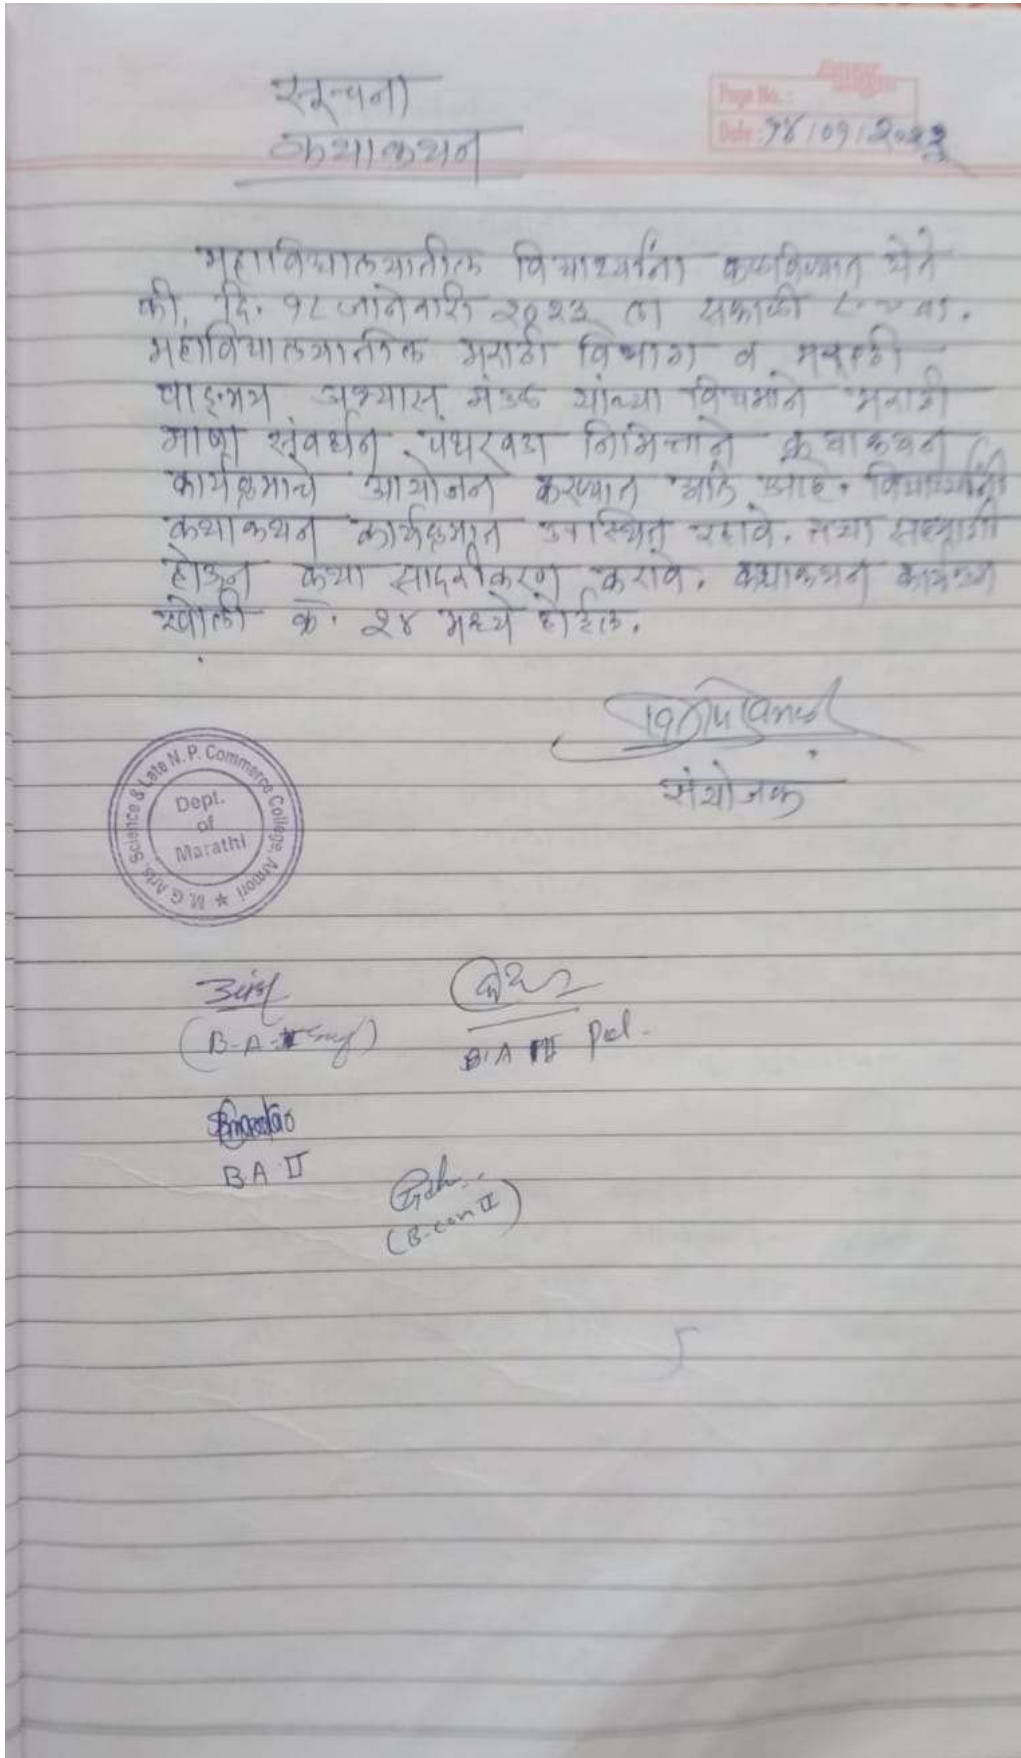 सूचना
कथाकथन
Page No.:
Date: १४/०१/२०२३
महाविद्यालयातील विद्यार्थ्यांना कळविण्यात येते
की, दि. १८ जानेवारी २०२३ ला सकाळी ८.०० वा.
महाविद्यालयातील मराठी विभाग व मराठी
वाङ्मय अभ्यास मंडळ यांच्या विद्यमाने मराठी
भाषा संवर्धन पंधरवडा निमित्ताने कथाकथन
कार्यक्रमाचे आयोजन करण्यात आले आहे. विद्यार्थ्यांनी
कथाकथन कार्यक्रमात उपस्थित रहावे. तथा सहभागी
होऊन कथा सादरीकरण करावे. कथाकथन कार्यक्रम
खोली क्र. २४ मध्ये होईल.
संयोजक
M. G. Arts, Science & Late N. P. Commerce College, Armori
Dept.
of
Marathi
(B-A-
B.A III Pol.
BA II
(B.com II)